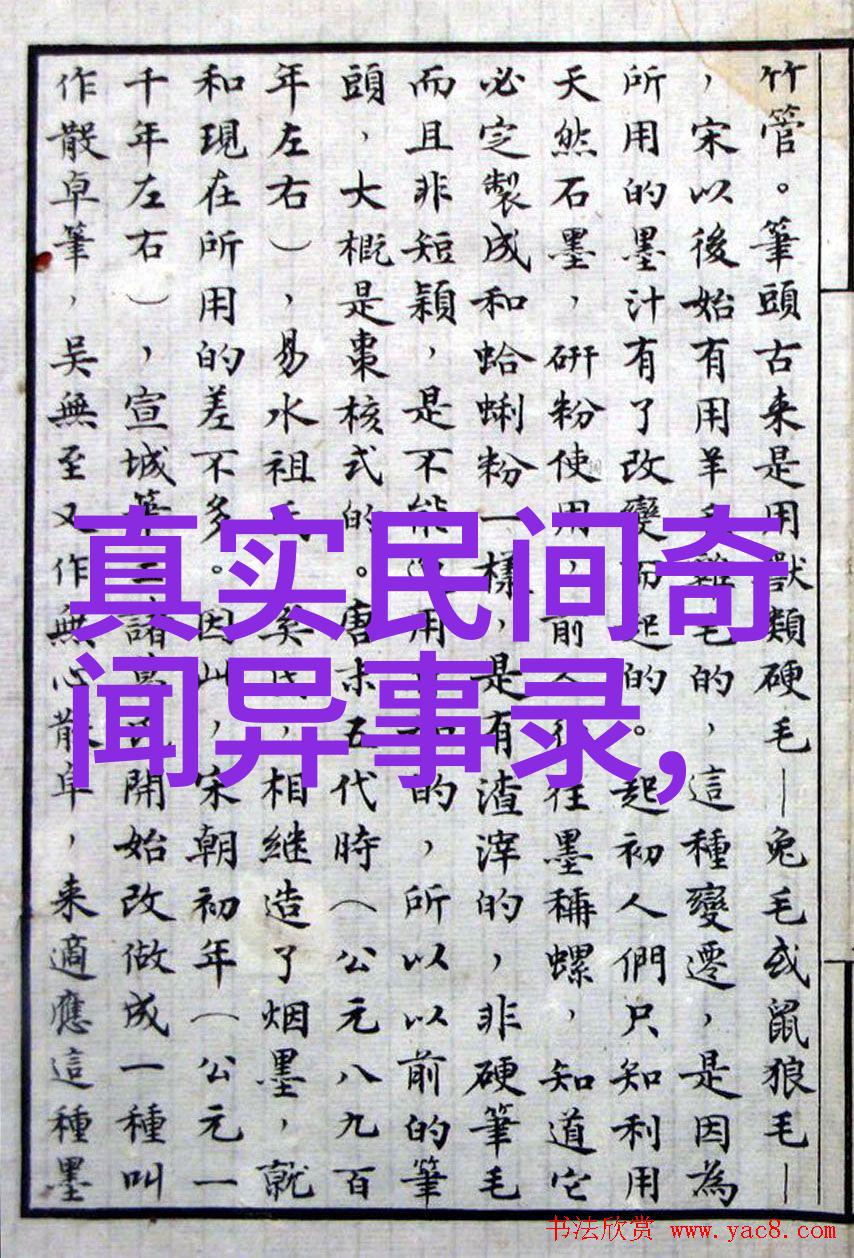 竹管。筆頭古来是用獸類硬毛—兔毛或鼠狼毛—
，宋以後始有用羊毛雞毛的，這種變遷，是因為
所用的墨汁有了改變而起的。起初人們只知利用
天然石墨，研粉使用，前人往往墨稱螺，知道它
必定製成和蛤蜊粉一樣，是有渣滓的，非硬筆毛
而且非短穎，是不能用的，所以以前的筆
頭，大概是棗核式的。唐末五代時（公元八九百
年左右），易水祖氏奚氏，相继造了烟墨，就
和現在所用的差不多。因此，宋朝初年（公元一
千年左右），宣城筆工諸葛氏開始改做成一種叫
作散卓筆，吳無至又作無心散卓，来適應這種墨
真实民间奇
闻异事录,
书法欣赏 www.yac8.com